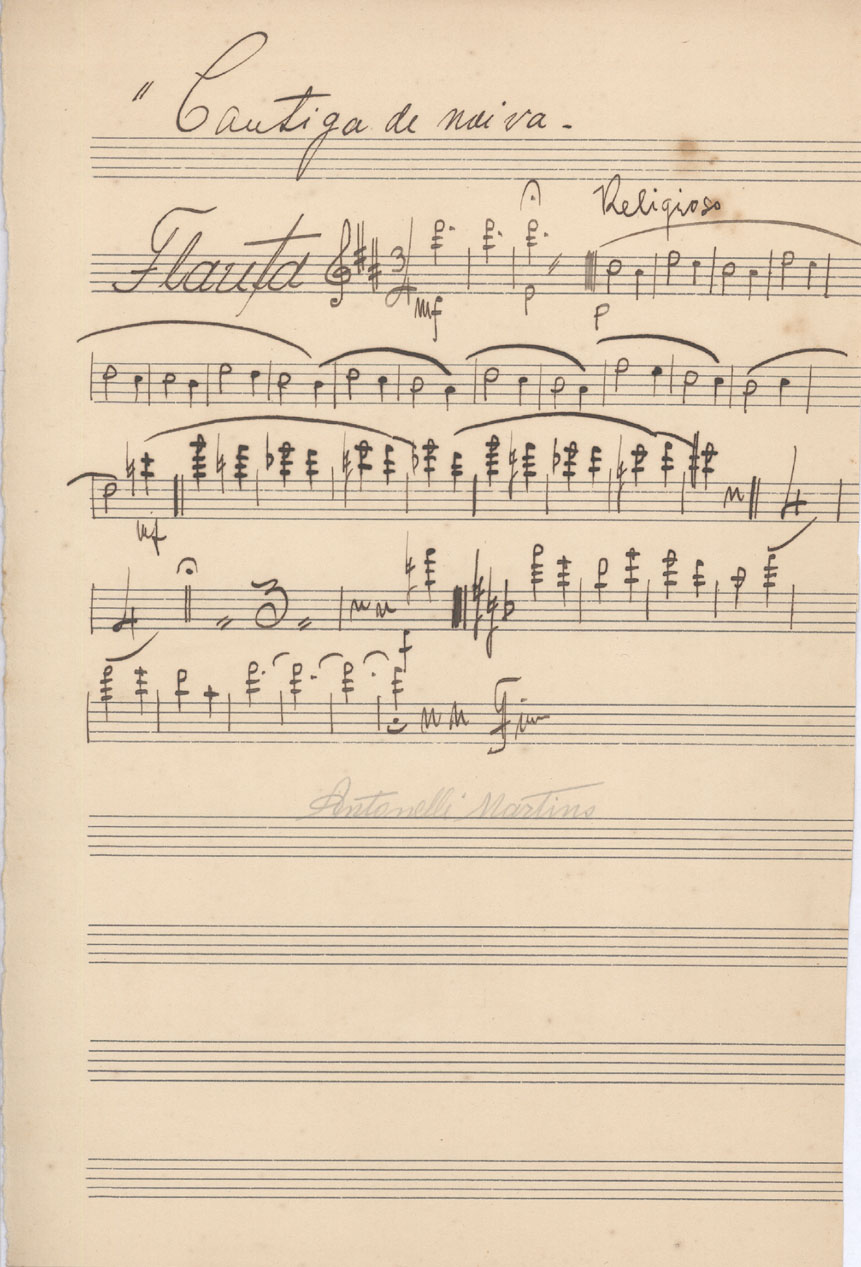 " Cantiga de noiva -
Religioso
Flauta 3 4
mf p p
mf 4
4 " 3 "
Fim
Antonelli Martins